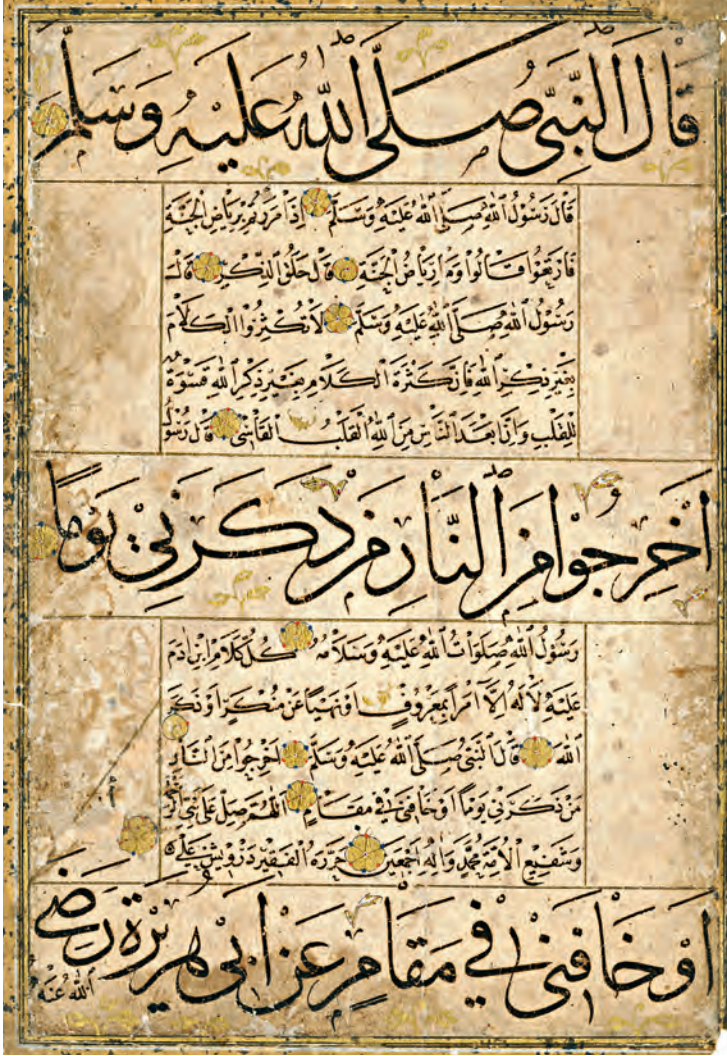 قَالَ النَّبِيُّ صَلَّى اللهُ عَلَيْهِ وَسَلَّمَ
قَالَ رَسُولُ اللهِ صَلَّى اللهُ عَلَيْهِ وَسَلَّمَ إِذَا مَرَرْتُمْ بِرِيَاضِ الْجَنَّةِ
فَارْتَعُوا قَالُوا وَمَا رِيَاضُ الْجَنَّةِ قَالَ حَلَقُ الذِّكْرِ قَالَ
رَسُولُ اللهِ صَلَّى اللهُ عَلَيْهِ وَسَلَّمَ لَا تُكْثِرُوا الْكَلَامَ
بِغَيْرِ ذِكْرِ اللهِ فَإِنَّ كَثْرَةَ الْكَلَامِ بِغَيْرِ ذِكْرِ اللهِ قَسْوَةٌ
لِلْقَلْبِ وَإِنَّ أَبْعَدَ النَّاسِ مِنَ اللهِ الْقَلْبُ الْقَاسِي قَالَ رَسُولُ
أَخْرِجُوا مِنَ النَّارِ مَنْ ذَكَرَنِي يَوْمًا
رَسُولُ اللهِ صَلَوَاتُ اللهِ عَلَيْهِ وَسَلَامُهُ كُلُّ كَلَامِ ابْنِ آدَمَ
عَلَيْهِ لَا لَهُ إِلَّا أَمْرًا بِمَعْرُوفٍ أَوْ نَهْيًا عَنْ مُنْكَرٍ أَوْ ذِكْرَ
اللهِ قَالَ النَّبِيُّ صَلَّى اللهُ عَلَيْهِ وَسَلَّمَ أَخْرِجُوا مِنَ النَّارِ
مَنْ ذَكَرَنِي يَوْمًا أَوْ خَافَنِي فِي مَقَامٍ اللهُمَّ صَلِّ عَلَى نَبِيِّ
وَشَفِيعِ الْأُمَّةِ مُحَمَّدٍ وَآلِهِ أَجْمَعِينَ حَرَّرَهُ الْفَقِيرُ دَرْوِيش عَلِي
أَوْ خَافَنِي فِي مَقَامٍ عَنْ أَبِي هُرَيْرَةَ رَضِيَ
اللهُ عَنْهُ